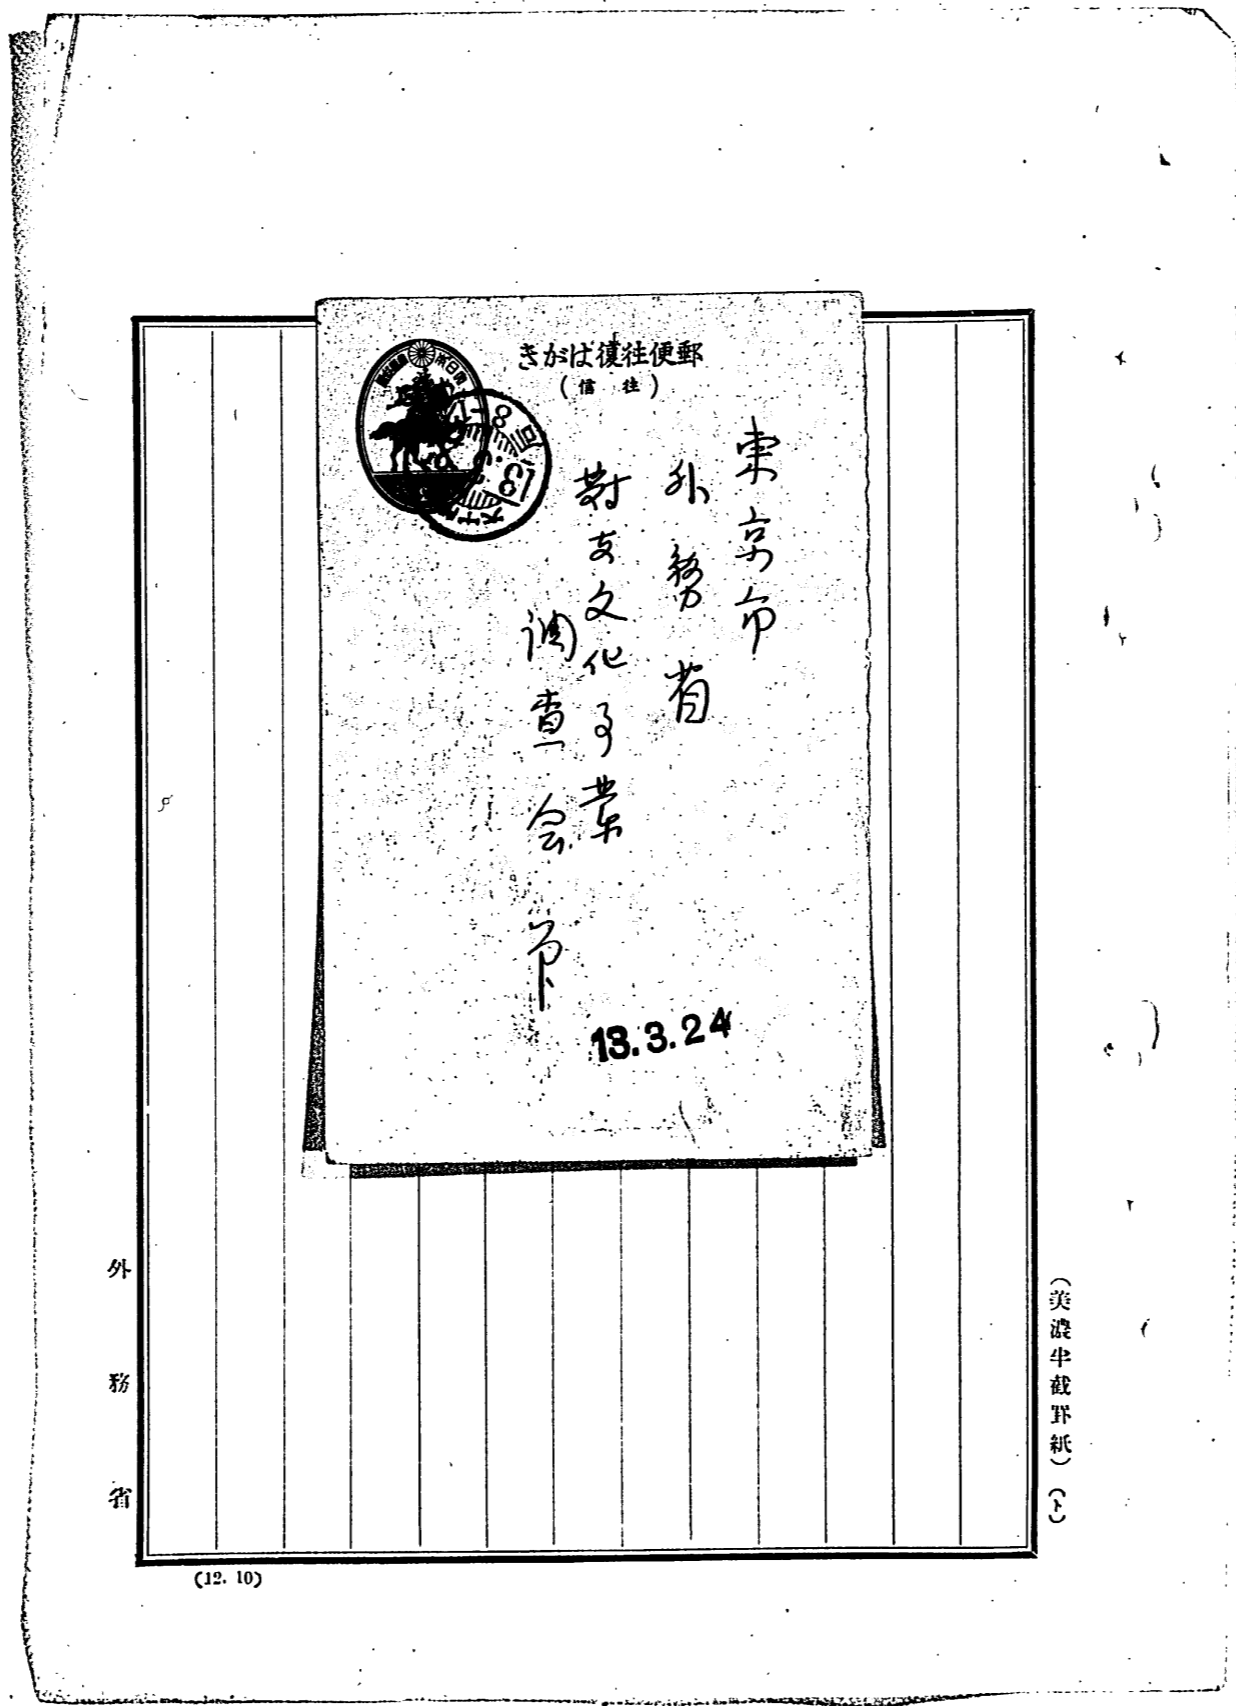 郵便往復はがき
(往信)
東京市
外務省
對支文化事業
調査会
13.3.24
(美濃半截罫紙)(ト)
外務省
(12. 10)